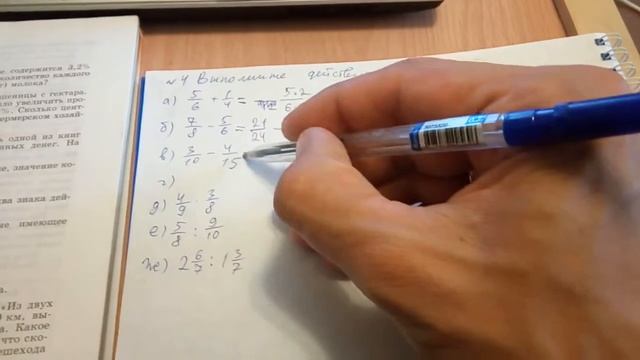 е содержится 3,2%
количество каждого
г) молока?
шеницы с гектара.
ло увеличить про-
%. Сколько цент-
ермерском хозяй-
ь одной из книг
анных денег. На
е, значение ко-
ва знака дей-
ые, имеющее
а.
«Из двух
0 км, вы-
а. Какое
что ско-
ешехода
№4 Выполните действ
а) 5/6 + 1/4 = 5·2/6
б) 7/8 - 5/6 = 21/24 -
в) 3/10 - 4/15
г)
д) 4/9 · 3/8
е) 5/8 : 9/10
ж) 2 6/7 : 1 3/7